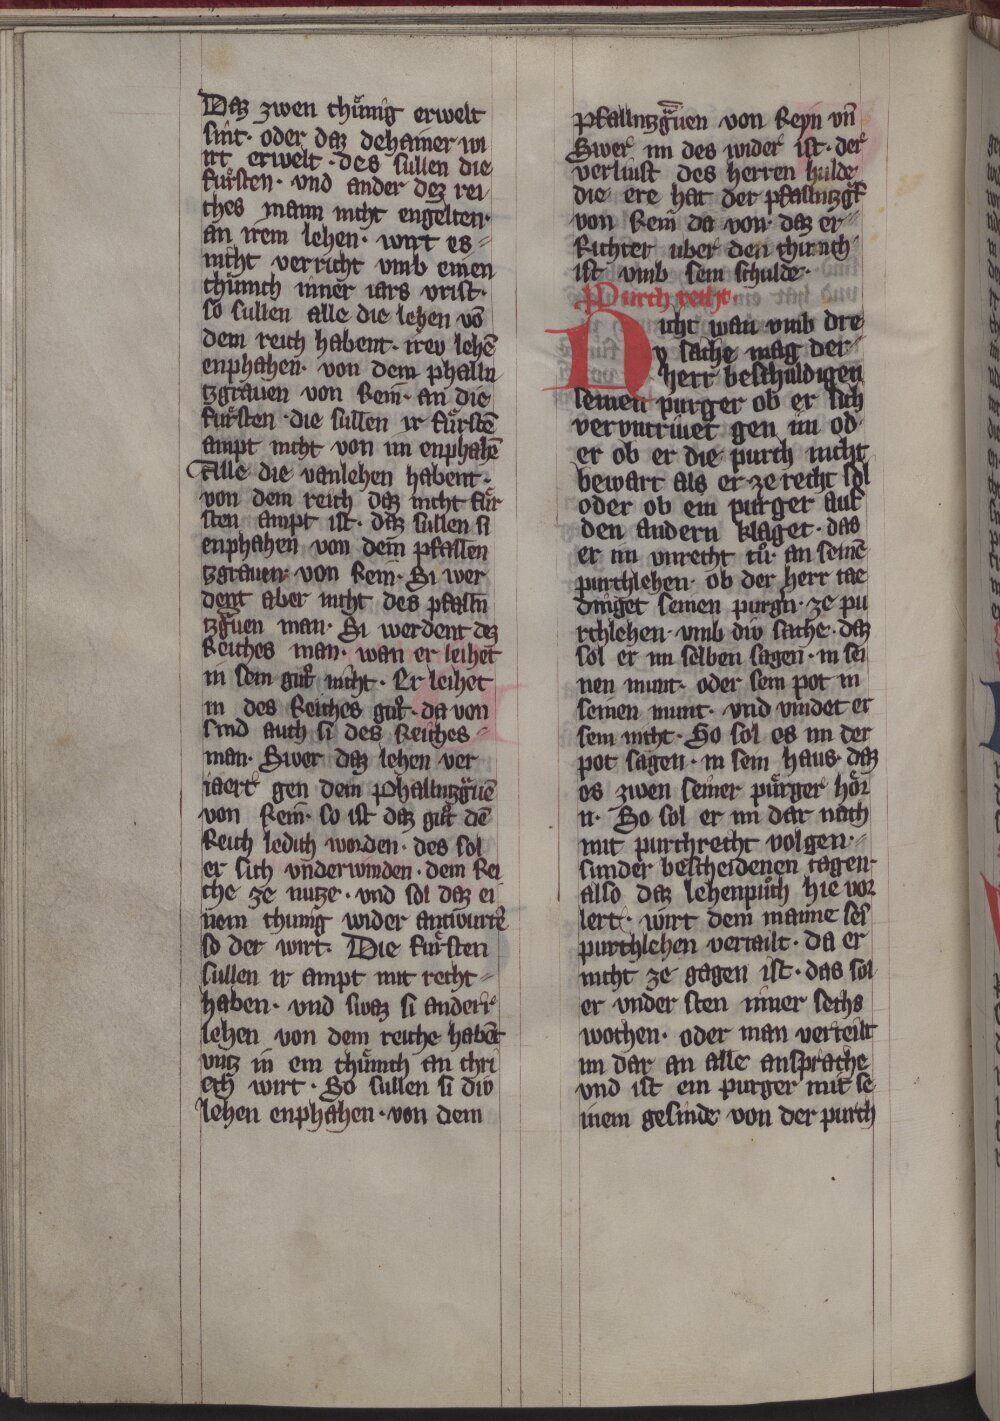 Daz zwen chuͤnig erwelt
sint· oder daz dehainer wi
rt erwelt· des sullen die
fuͤrsten· vnd ander dez rei
ches mann nicht engelten·
an irem lehen· wirt es
nicht verricht vmb einen
chuͤnich inner iars vrist·
so sullen alle die lehen vō
dem reich habent· irev lehē
enphahen· von dem phalln
tzgrauen von Rein· an die
fuͤrsten· die sullen ir fuͤrstē
ampt nicht von im enphahē
Alle die vanlehen habent·
von dem reich daz nicht fuͤr
sten ampt ist· daz sullen si
enphahen von dem pfallen
tzgrauen· von Rein· Si wer
dent aber nicht des pfalln
tzgͣuen man· Si werdent dez
Reiches man· wan er leihet
in sein guͦt nicht· Er leihet
in des Reiches guͦt· da von
sind auch si des Reiches
man· Swer daz lehen ver
iaert gen dem Phallntzgͣuē
von Rein· so ist daz guͦt dē
Reich ledich worden· des sol
er sich vnderwinden· dem Rei
che ze nutze· vnd sol daz ei
nem chunig wider antwurtē
so der wirt· Die fuͤrsten
sullen ir ampt mit recht
haben· vnd swaz si anderr
lehen von dem reiche habēt
vntz in ein chuͤnich an chri
ech wirt· So sullen si div
lehen enphahen· von dem
pfallntzgͣuen von Reyn vn̄
Swer im des wider ist· der
verliust des herren hulde
die ere hat der pfallntzgͣf
von Rein da von· daz er
Richter uber den chunich
ist vmb sein schulde·
Purch recht·
Nicht wan vmb dre
y sache mag der
herr beschuldigen
seinen purger ob er sich
vervntriuet gen im od
er ob er die purch nicht
bewart als er ze recht sol
oder ob ein purger auf
den andern klaget· das
er im vnrecht tuͦ· an seinē
purchlehen· ob der herr tae
dinget seinen purgn̄· ze pu
rchlehen· vmb div sache· daz
sol er im selben sagen· in sei
nen munt· oder sein pot in
seinen munt· vnd vindet er
sein nicht· So sol es im der
pot sagen· in sein haus· daz
os zwen seiner puͤrger hoͤr
n· So sol er im dar nach
mit purchrecht volgen·
sunder bescheidenen tagen·
also daz lehenpuͦch hie vor
lert· wirt dem manne sēī
purchlehen vertailt· da er
nicht ze gagen ist· das sol
er vnder sten inner sechs
wochen· oder man verteilt
im dar an alle ansprache
vnd ist ein purger mit se
inem gesinde von der purch